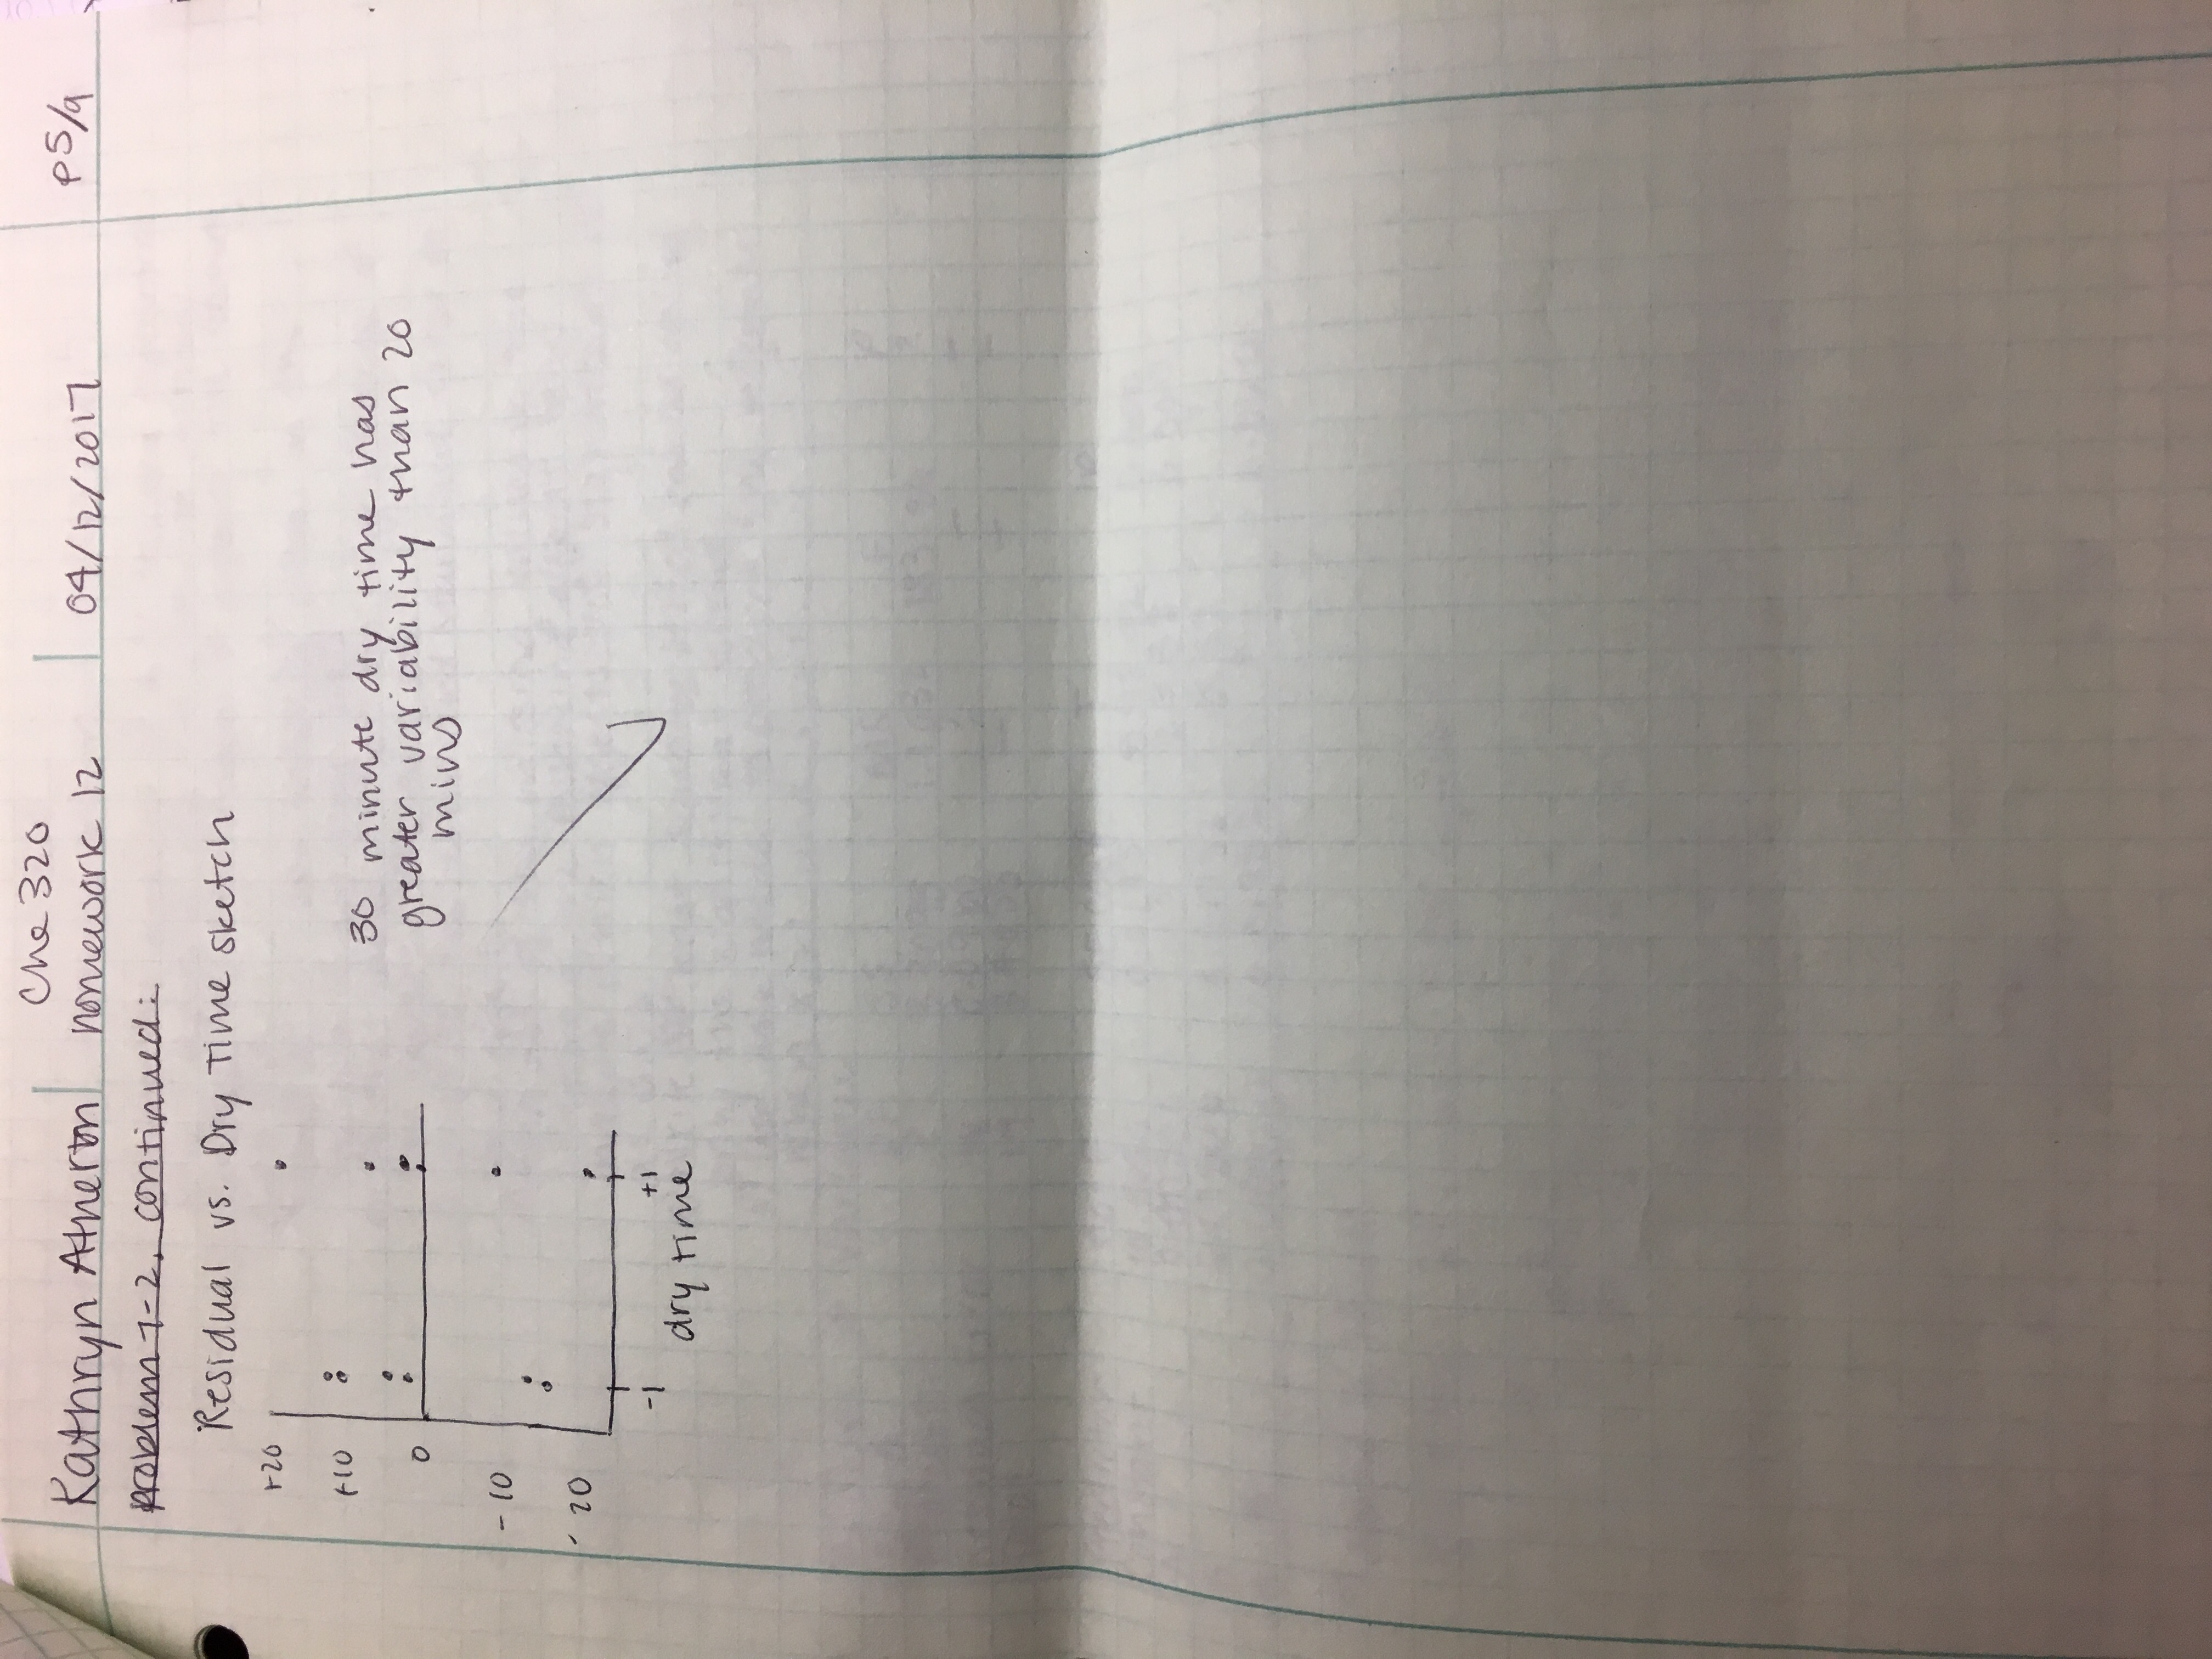 Che 320
Kathryn Atherton
homework 12
04/12/2017
p5/9
problem 7-2, continued:
Residual vs. Dry Time sketch
+20
+10
0
-10
-20
-1
+1
dry time
30 minute dry time has
greater variability than 20
mins